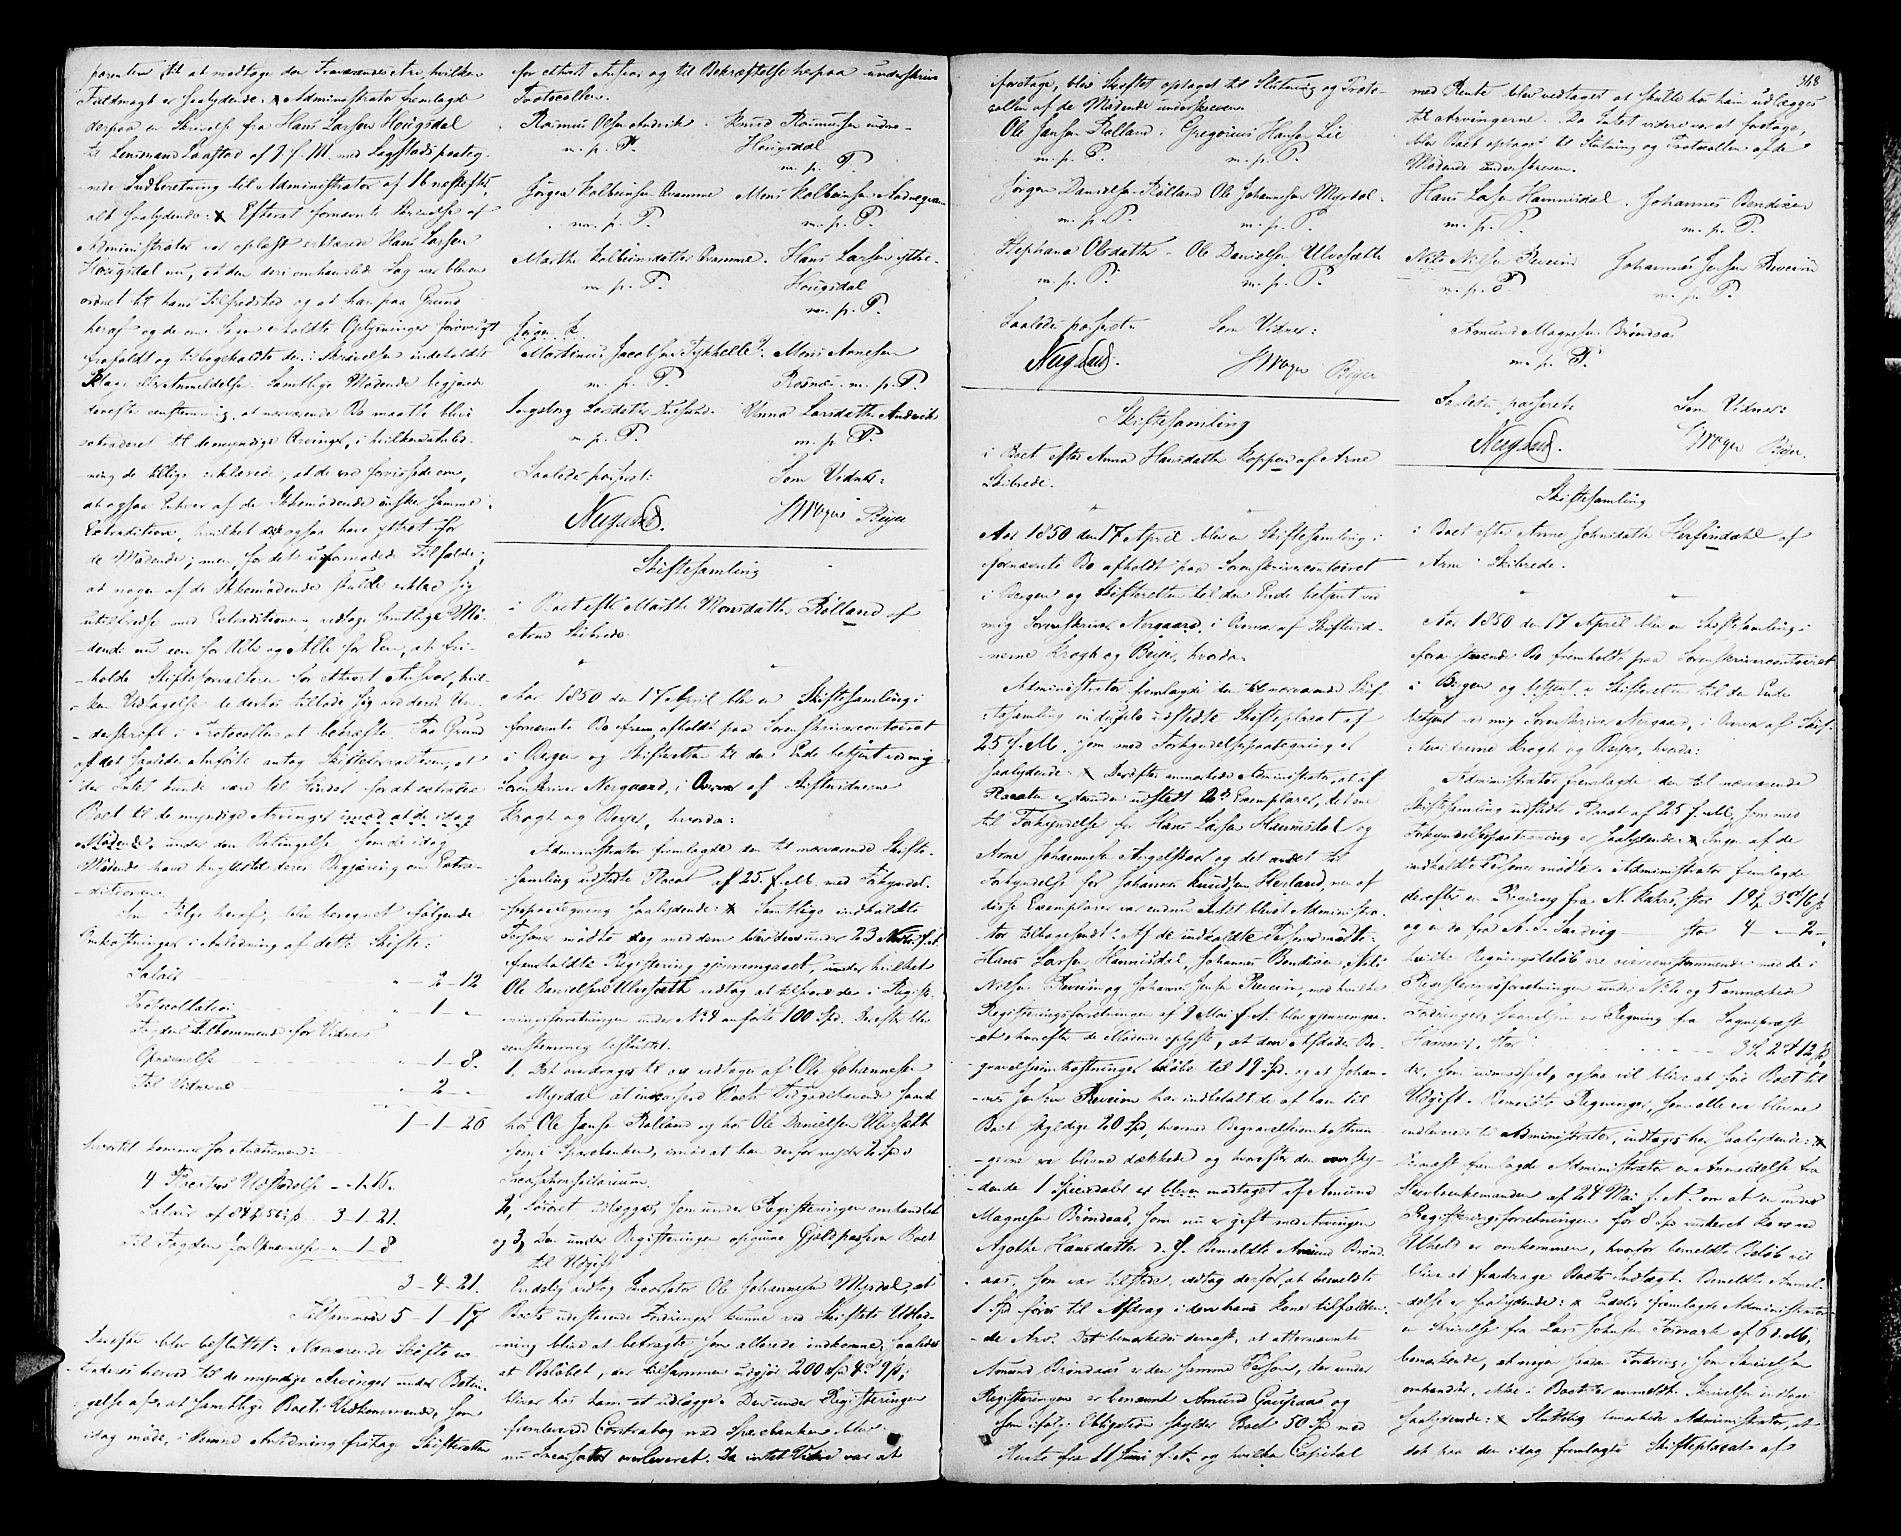 parenten til at modtage den Fraværendes Arv, hvilken
Fuldmagt er saalydende: Administrator fremlagde
derpaa en Skrivelse fra Hans Larsen Hougsdal
til Lensmand Laastad af f. M. med Lagstads paateg-
nede Indberetning til Administrator af 16 næstefter,
alt saalydende: Efterat fornævnte Skrivelse af
Administrator var oplæst erklærede Hans Larsen
Hougsdal nu, at den deri omhandlede Sag var bleven
ordnet til hans Tilfredshed og at han paa Grund
heraf og de om Sagen erholdte Oplysninger forøvrigt
frafaldt og tilbagekaldte den i Skrivelsen indeholdte
Klage eller Anmeldelse. Samtlige Mødende begjærede
derefter eenstemmig, at nærværende Bo maatte blive
extraderet til de myndige Arvinger, i hvilken Anled-
ning de tillige erklærede, at de vare forvissede om,
at ogsaa Enhver af de Ikkemødende ønske samme
Extradition, hvilket de ogsaa have yttret for
de Mødende; men, for det uformodede Tilfælde,
at nogen af de Ikkemødende skulde erklære sig
utilfreds med Extraditionen, vedtoge samtlige Mø-
dende nu een for Alle og Alle for Een, at fri-
holde Skifteforvalteren for ethvert Ansvar, hvil-
ken Vedtagelse de derhos tillode sig ved deres Un-
derskrift i Protocollen at bekræfte. Paa Grund
af det saaledes Anførte antog Skifteforvalteren, at
der Intet kunde være til Hinder for at extradere
Boet til de myndige Arvinger imod at de idag
Mødende, under den Betingelse som de idag
Mødende have knyttet til deres Begjæring om Extra-
ditionen.
Som Følge heraf, blev beregnet følgende
Omkostninger i Anledning af dette Skifte:
Salair " - 2 - 12
Protocollation " - 1 - "
Fogden tilkommende for Vidners
Opnævnelse " - 1 - 8.
Til Vidnerne " - 2 - "
1 - 1 - 20
hvortil kommer for Auctionen:
4 Placaters Udstedelse " - 1 - 16.
Salair af 3 - 1 - 21.
til Fogden for Opnævnelse " - 1 - 8
3 - 4 - 21.
Tilsammen 5 - 1 - 17
Derefter blev besluttet: Nærværende Skifte ex-
traderes herved til de myndige Arvinger under Betin-
gelse af, at samtlige Boets Vedkommende, som
idag møde, i denne Anledning fritage Skifteretten
for ethvert Ansvar og til Bekræftelse herpaa underskrive
Protocollen.
Rasmus Olsen Andvik. Knud Rasmussen indre-
m. p. P. Hougsdal
m. p. P.
Jørgen Kolbeinsen Qvamme Mons Kolbeinsen
m. p. P. m. p. P.
Marthe Kolbeinsdatter Qvamme. Hans Larsen ystre-
m. p. P. Hougsdal
m. p. P.
Martinus Jacobsen Mons Arnesen
m. p. P. Rosnes. m. p. P.
Ingeborg Larsdatter Anna Larsdatter Andvik
m. p. P. m. p. P.
Saaledes passeret: Som Vidner:
Neergaard. Krogh Beyer
Skiftesamling
i Boet efter Marthe Monsdatter Rølland af
Arne Skibrede.
Aar 1850 den 17 April blev en Skiftesamling i
fornævnte Bo afholdt paa Sorenskrivercontoiret
i Bergen og Skifteretten til den Ende betjent ved mig
Sorenskriver Neergaard, i Overvær af Skiftevidnerne
Krogh og Beyer, hvorda:
Administrator fremlagde den til nærværende Skifte-
samling udstedte Placat af 25 f. M. med Forkyndel-
sespaategning saalydende: Samtlige indkaldte
Personer mødte idag med dem blev den under 23
fremholdte Registrering gjennemgaaet, under hvilket
Ole Danielsen Ulvesæth vedtog at tilsvare den i Registre-
ringsforretningen under No 4 anførte 100 Spd. Derefter blev
eenstemmig besluttet:
1, Det overdrages til og vedtages af Ole Johannesen
Myrdal at incassere Boets Tilgodehavende samt
hos Ole Jansen Rølland og hos Ole Danielsen Ulvesæth
som i Sparebanken, imod at han derfor nyder 2 Spd i
Incassationssalarium.
2, Løsøret udlægges, som under Registreringen omhandlet
og 3, De under Registreringen opgivne Gjældsposter Boet
til Udgift.
Endelig vedtog Incassator Ole Johannesen Myrdal, at
Boets udestaaende Fordringer kunne ved Skiftets Udlod-
ning blive at betragte som allerede indkomne, saaledes
at Beløbet, der tilsammen udgjør 200 Spd 4 9 s,
bliver hos ham at udlægge. Den under Registreringen
fremlagde Contrabog med Sparebanken blev
nu Incassator overleveret. Da intet Videre var at
foretage, blev Skiftet optaget til Slutning og Proto-
collen af de Mødende underskreven.
Ole Jansen Rølland. Gregorius Hansen Lie
m. p. P. m. p. P.
Jørgen Danielsen Rølland Ole Johannesen Myrdal.
m. p. P. m. p. P.
Stephana Olsdatter - Ole Danielsen Ulvesæth
m. p. P. m. p. P.
Saaledes passeret Som Vidner:
Neergaard. Krogh Beyer
Skiftesamling
i Boet efter Anna Hansdatter Koppen af Arne
Skibrede.
Aar 1850 den 17 April blev en Skiftesamling i
fornævnte Bo afholdt paa Sorenskrivercontoiret
i Bergen og Skifteretten til den Ende betjent ved
mig Sorenskriver Neergaard, i Overvær af Skiftevid-
nerne Krogh og Beyer, hvorda:
Administrator fremlagde den til nærværende Skif-
tesamling in duplo udstedte Skifteplacat af
25 f. M. som med Forkyndelsespaategning er
saalydende: Derefter anmærkede Administrator, at af
Placaten er udstedt 2de Exemplarer, det ene
til Forkyndelse for Hans Larsen Hamnisdal og
Arne Johannesen og det andet til
Forkyndelse for Johannes Knudsen Herland, men af
disse Exemplarer var endnu Intet blevet Administra-
tor tilbagesendt. Af de indkaldte Personer mødte:
Hans Larsen Hamnisdal, Johannes Bendixen, Nils
Nilsen Reveim og Johannes Jensen Reveim, med hvilke
Registreringsforretningen af 9 Mai f. A. blev gjennemgaa-
et, hvorefter de Mødende oplyste, at den Afdødes Be-
gravelsesomkostninger beløbe til 19 Spd. og at Johan-
nes Jensen Reveim har indbetalt de af ham til
Boet skyldige 20 Spd, hvormed Begravelsesomkostnin-
gerne ere blevne dækkede og hvorefter den overskydende
1 Speciedaler er bleven modtaget af Amund
Magnesen Brøndaas, som nu er gift med Arvingen
Agathe Hansdatter d. Y. Bemeldte Amund Brønd-
aas, som var tilstede, vedtog derfor, at bemeldte
1 Spd føres til Afdrag i den hans Kone tilfalden-
de Arv. Det bemærkedes dernæst, at sidstnævnte
Amund Brøndaas er den samme Person, der under
Registreringen er benævnt Amund Gausaas og
som ifølge Obligation skylder Boet 50 Spd med
Rente fra 11 Juni f. A. og hvilken Capital
368
med Rente blev vedtaget at skulle hos ham udlægges
til Arvingerne. Da Intet videre var at foretage,
blev Boet optaget til Slutning og Protocollen af de
Mødende underskreven.
Hans Larsen Hamnisdal. Johannes Bendixen
m. p. P. m. p. P.
Nils Nilsen Reveim Johannes Jensen Reveim
m. p. P. m. p. P.
Amund Magnesen Brøndaas
m. p. P.
Saaledes passeret. Som Vidner:
Neergaard. Krogh Beyer.
Skiftesamling
i Boet efter Anne Johnsdatter Herfindahl af
Arne Skibrede.
Aar 1850 den 17 April blev en Skiftesamling i
foranstaaende Bo fremholdt paa Sorenskrivercontoiret
i Bergen og betjent Skifteretten til den Ende
betjent ved mig Sorenskriver Neergaard, i Overvær af Skif-
tevidnerne Krogh og Beyer, hvorda:
Administrator fremlagde den til nærværende
Skiftesamling udstedte Placat af 25 f. M. som med
Forkyndelsespaategning er saalydende: Ingen af de
indkaldte Personer mødte. Administrator fremlagde
derefter en Regning fra N. Kahrs, stor 19
og en do fra A. J. Sandvig stor 4 - 2 -
hvilke Regningsbeløb ere overensstemmende med de i
Registreringsforretningen under No 2 og 5 anmærkede
Fordringer, samt en Regning fra Sognepræst
Hammer, stor 3 2 12
der, som ogsaa vil blive at føre Boet til
Udgift. Bemeldte Regninger, som alle ere blevne
indleverede til Administrator, indtages her saalydende:
Dernæst fremlagde Administrator en Anmeldelse fra
Skrevbenkemænden af 24 Mai f. A. om at en under
Registreringsforretningen for 8 Spd vurderet Ko er ved
Uheld er omkommen, hvorfor bemeldte Beløb vil
blive at fradrage Boets Indtægt. Bemeldte Anmel-
delse er saalydende: Endelig fremlagde Administrator
en Skrivelse fra Lars Johnsen af 6 d. M.,
bemærkende, at nogen saadan Fordring, som Skrivelsen
omhandler, ikke i Boet er anmeldt. Skrivelsen indtages
saalydende: Sluttelig bemærkede Administrator, at
det paa den idag fremlagte Skifteplacat af